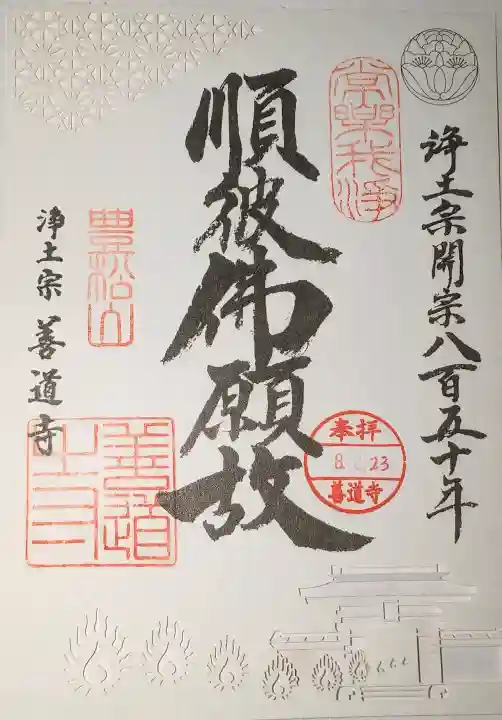 浄土宗開宗八百五十年
常樂我浄
順彼佛願故
奉拝
8. 23
善道寺
豊松山
浄土宗 善道寺
善道